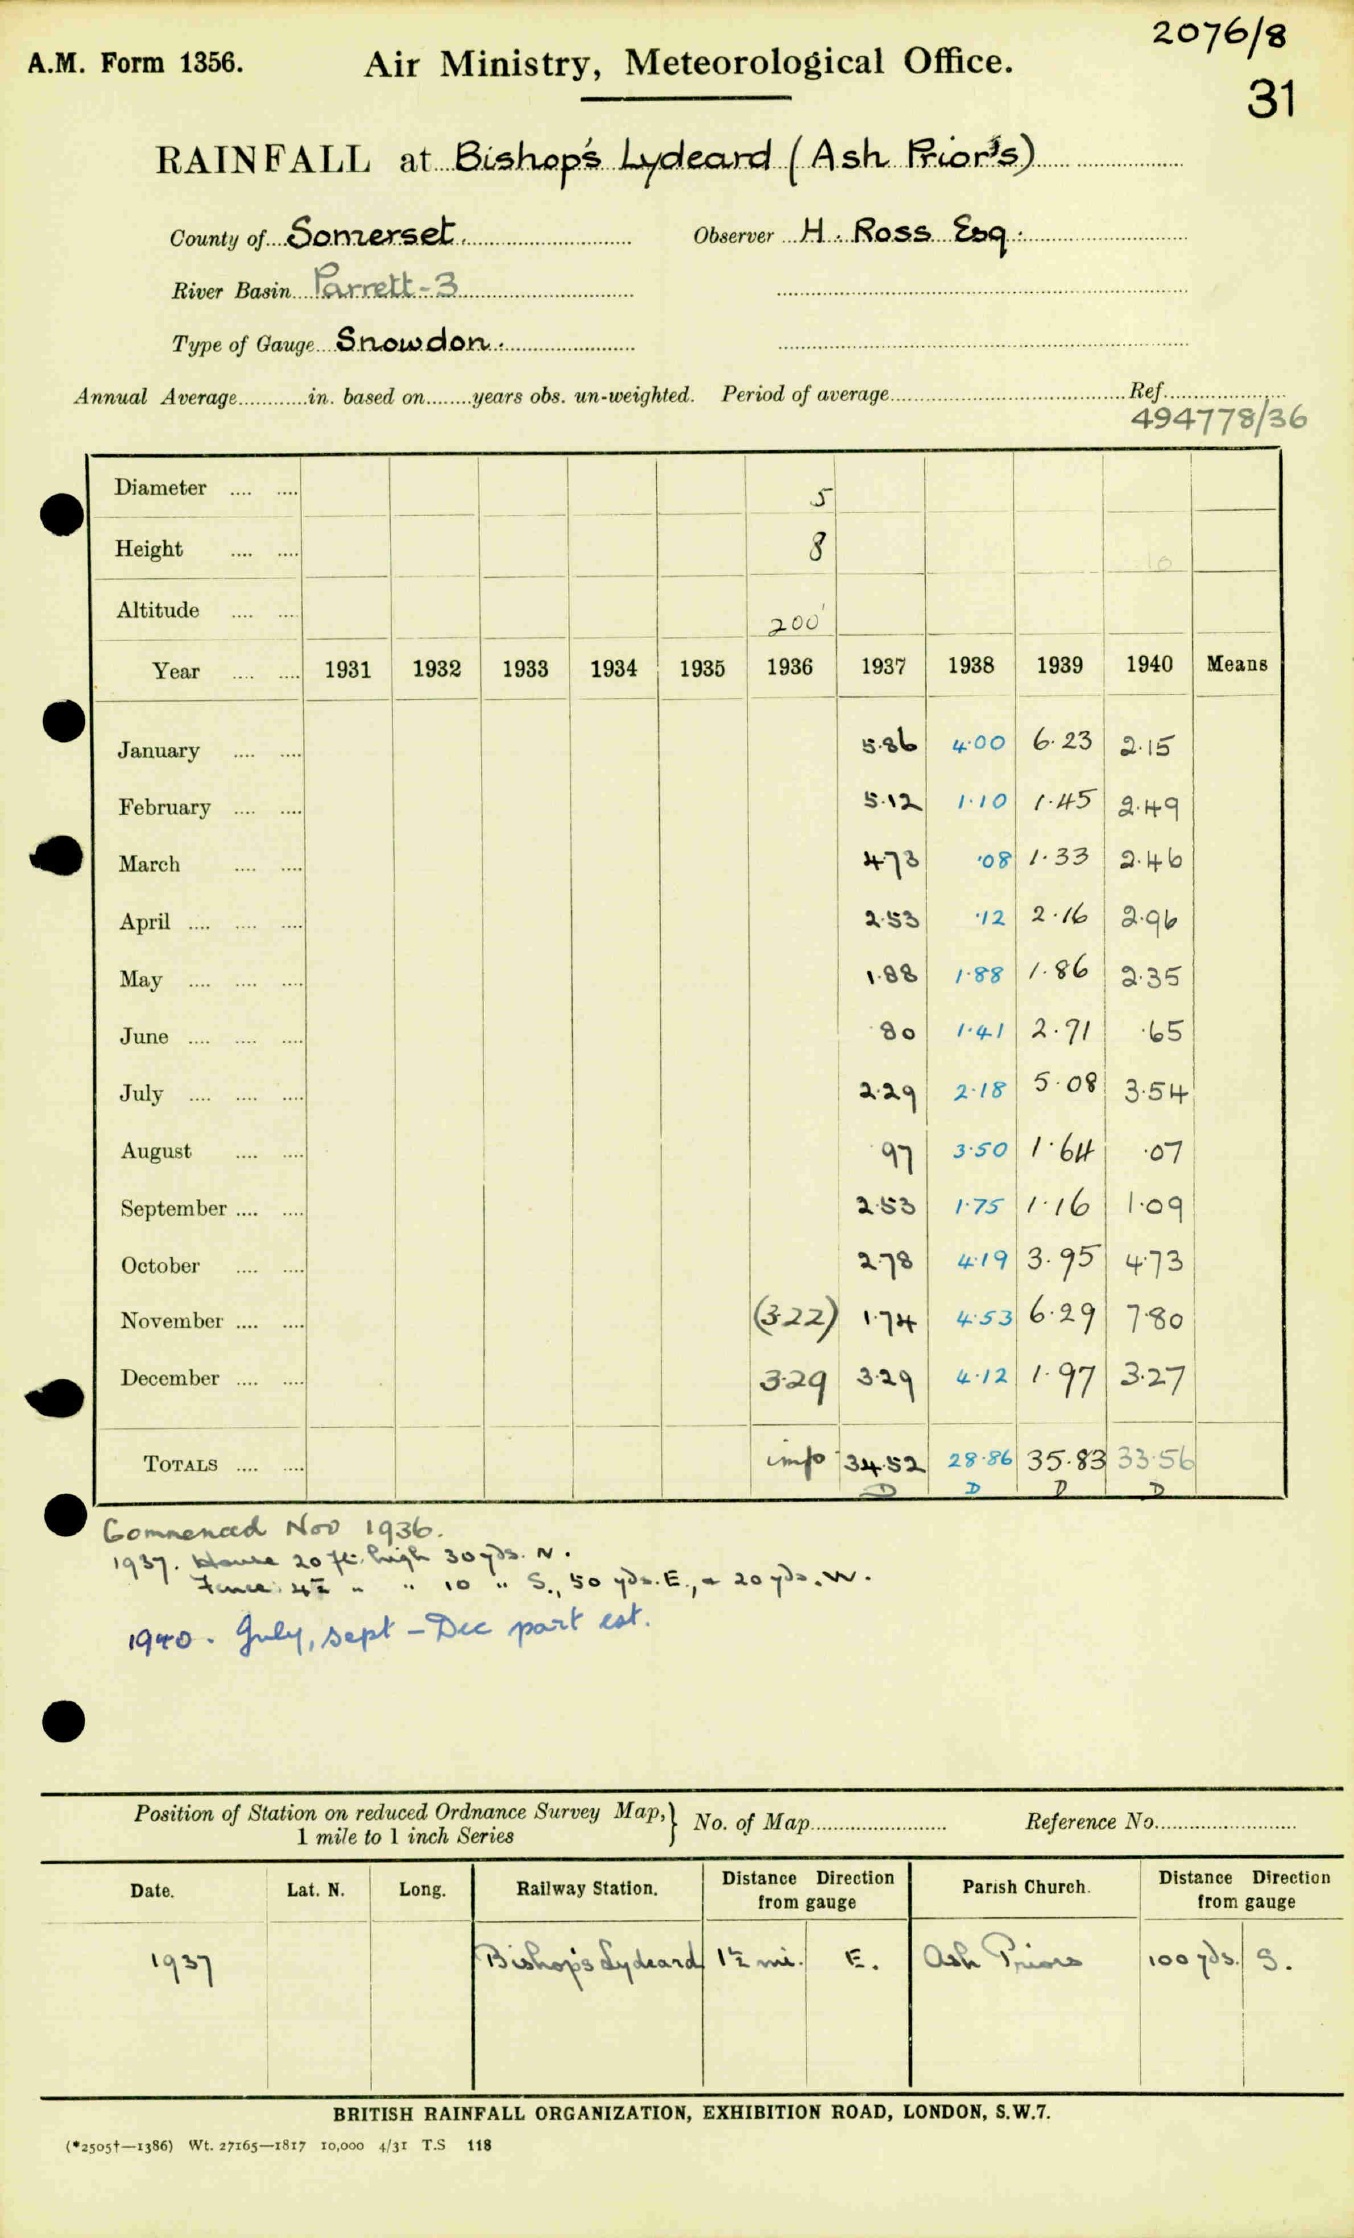 2076/8
A.M. Form 1356. Air Ministry, Meteorological Office.
31
RAINFALL at Bishop's Lydeard (Ash Prior's)
County of Somerset. Observer H. Ross Esq.
River Basin Parrett-3
Type of Gauge Snowdon.
Annual Average in. based on years obs. un-weighted. Period of average Ref.
494778/36
Diameter 5
Height 8 10
Altitude 200'
Year 1931 1932 1933 1934 1935 1936 1937 1938 1939 1940 Means
January 5.86 4.00 6.23 2.15
February 5.12 1.10 1.45 2.49
March 4.73 .08 1.33 2.46
April 2.53 .12 2.16 2.96
May 1.88 1.88 1.86 2.35
June .80 1.41 2.71 .65
July 2.29 2.18 5.08 3.54
August .97 3.50 1.64 .07
September 2.53 1.75 1.16 1.09
October 2.78 4.19 3.95 4.73
November (3.22) 1.74 4.53 6.29 7.80
December 3.29 3.29 4.12 1.97 3.27
TOTALS imp 34.52 28.86 35.83 33.56
D D D D
Commenced Nov 1936.
1937. House 20 ft. high 30 yds. N.
Fence 4½ " " 10 " S., 50 yds. E., & 20 yds. W.
1940. July, Sept – Dec part est.
Position of Station on reduced Ordnance Survey Map, } No. of Map Reference No.
1 mile to 1 inch Series
Date. Lat. N. Long. Railway Station. Distance Direction from gauge Parish Church. Distance Direction from gauge
1937 Bishop's Lydeard 1½ mi. E. Ash Priors 100 yds. S.
BRITISH RAINFALL ORGANIZATION, EXHIBITION ROAD, LONDON, S.W.7.
(*2505†—1386) Wt. 27165—1817 10,000 4/31 T.S 118